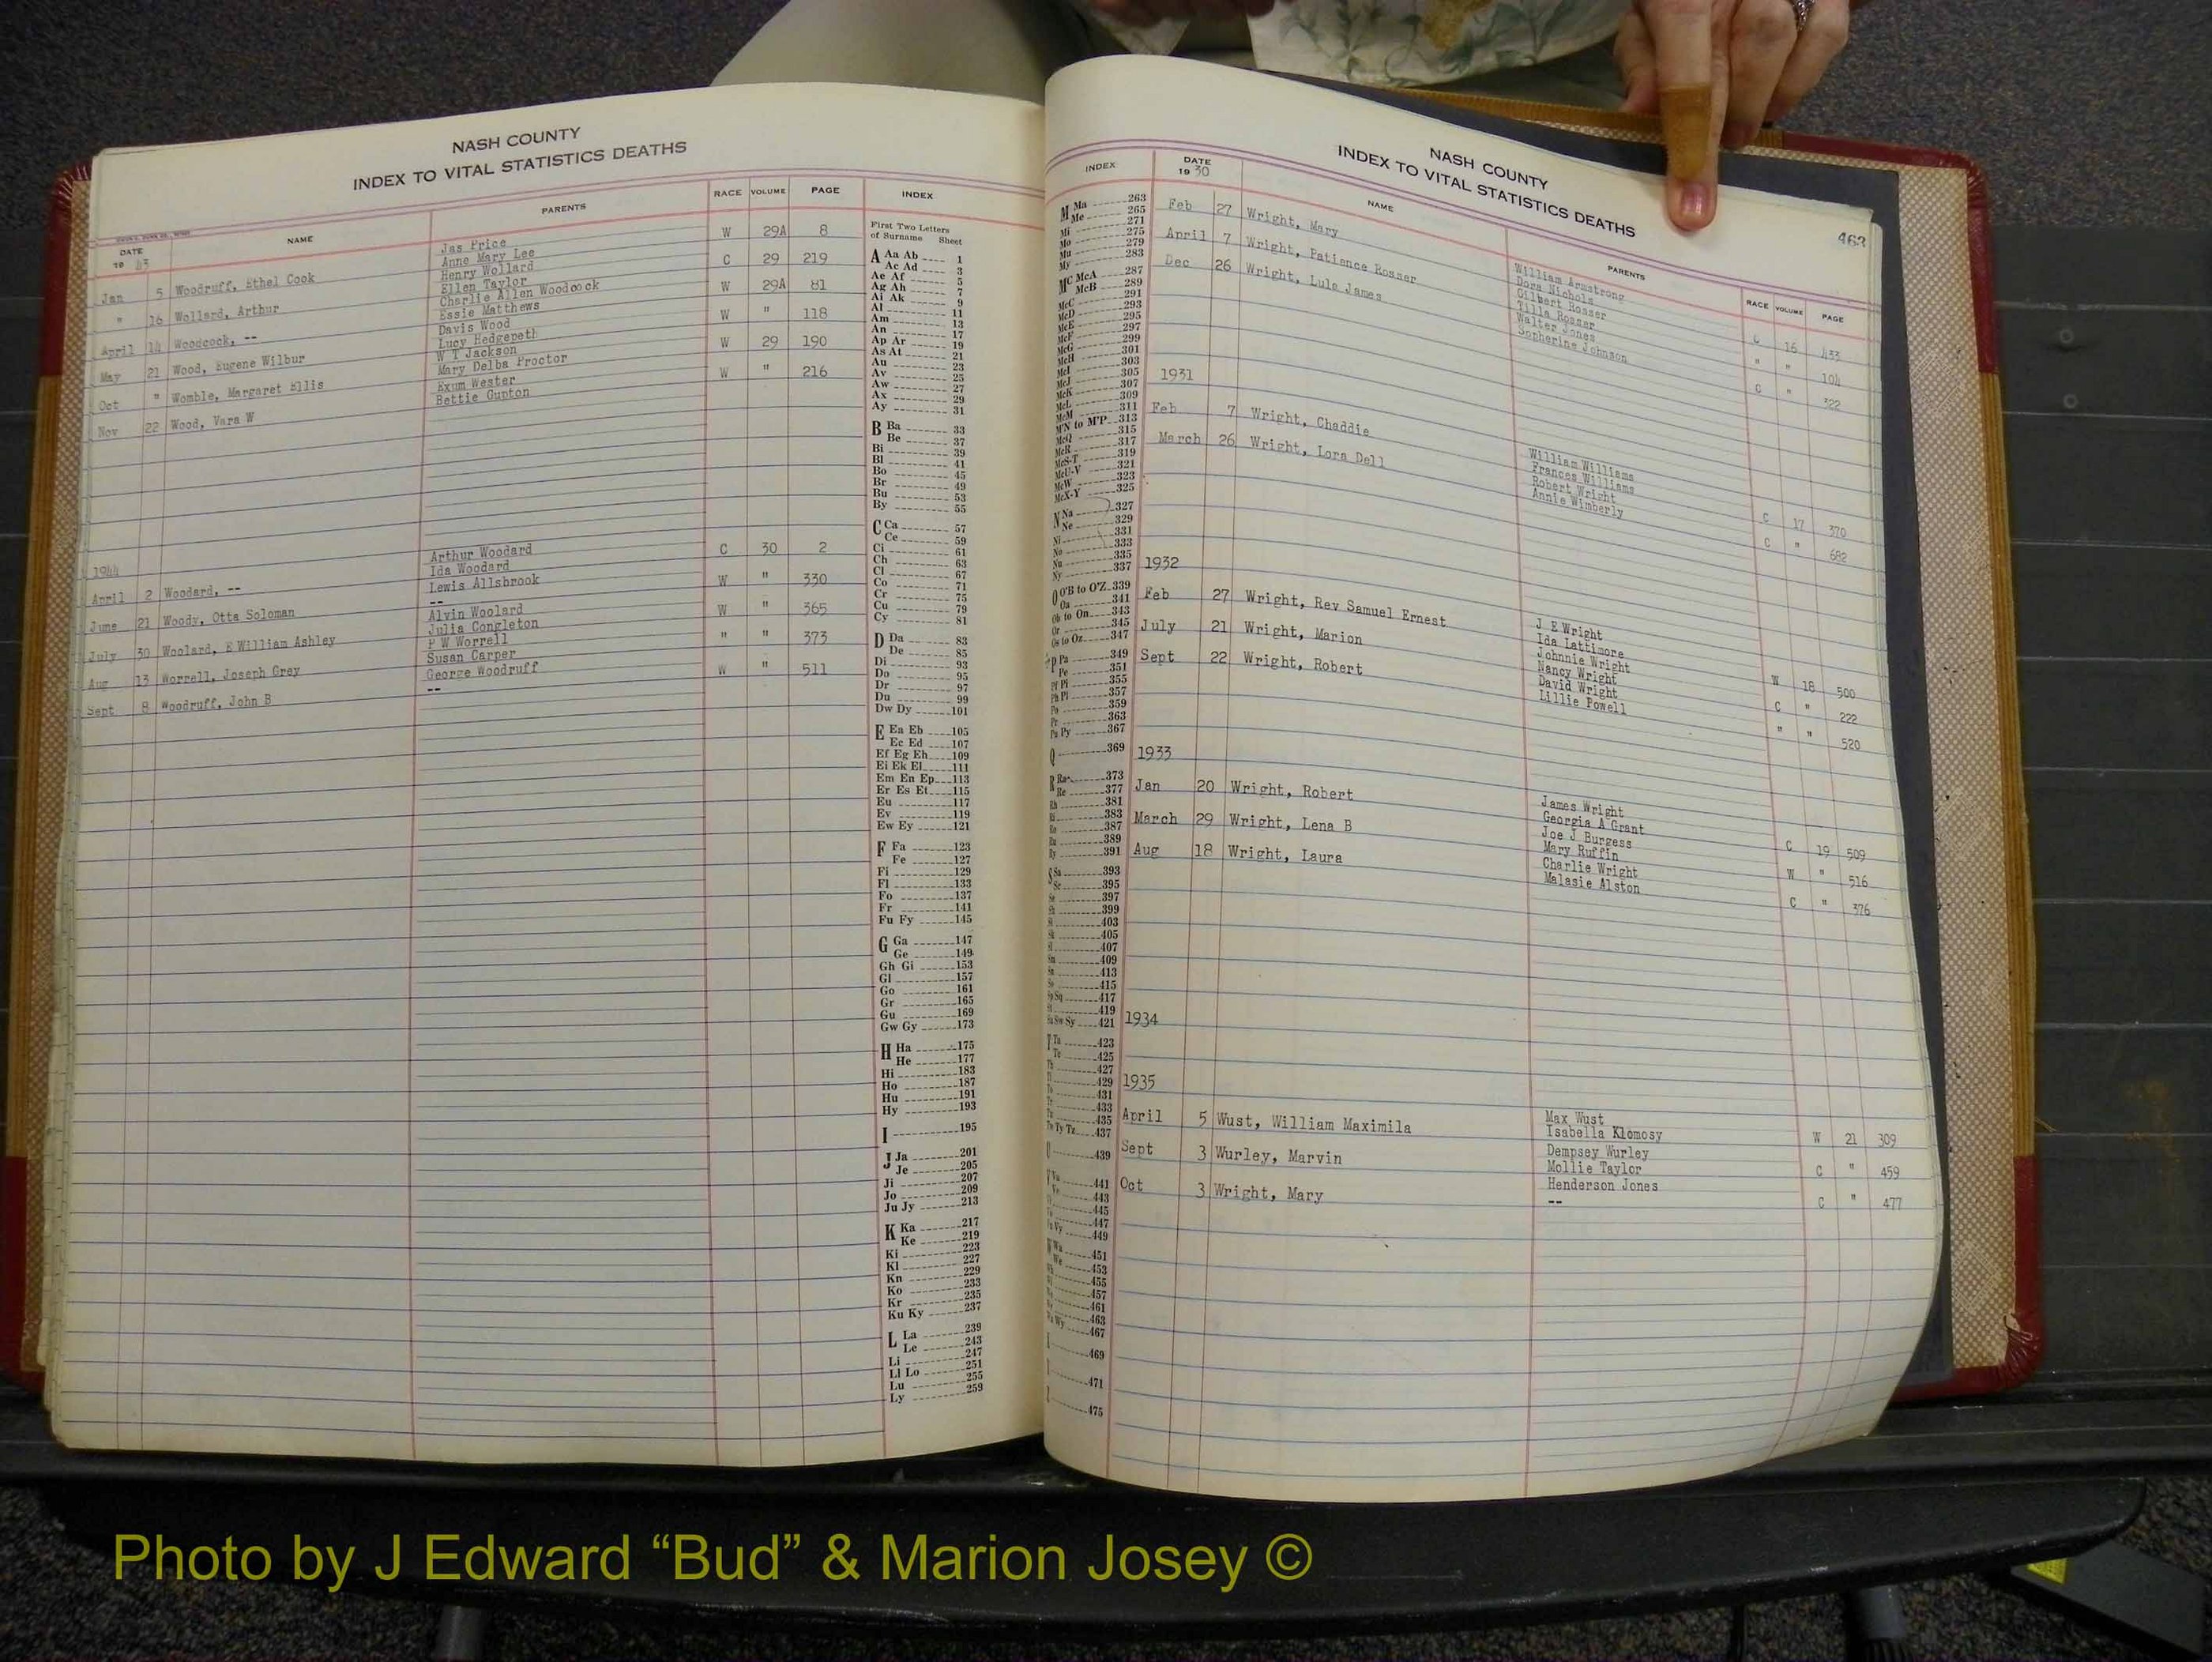 NASH COUNTY
INDEX TO VITAL STATISTICS DEATHS
DATE 19 43 NAME PARENTS RACE VOLUME PAGE INDEX
Jan 5 Woodruff, Ethel Cook Jas Price W 29A 8
Anne Mary Lee
" 16 Wollard, Arthur Henry Wollard C 29 219
Ellen Taylor
April 14 Woodcock, -- Charlie Allen Woodcock W 29A 81
Essie Matthews
May 21 Wood, Eugene Wilbur Davis Wood W " 118
Lucy Hedgepeth
Oct " Womble, Margaret Ellis W T Jackson W 29 190
Mary Delba Proctor
Nov 22 Wood, Vara W Exum Wester W " 216
Bettie Gupton
1944
April 2 Woodard, -- Arthur Woodard C 30 2
Ida Woodard
June 21 Woody, Otta Soloman Lewis Allsbrook W " 330
--
July 30 Woolard, E William Ashley Alvin Woolard W " 365
Julia Congleton
Aug 13 Worrell, Joseph Grey P W Worrell " " 373
Susan Carper
Sept 8 Woodruff, John B George Woodruff W " 511
--
First Two Letters
of Surname Sheet
A Aa Ab 1
Ac Ad 3
Ae Af 5
Ag Ah 7
Ai Ak 9
Al 11
Am 13
An 17
Ap Ar 19
As At 21
Au 23
Av 25
Aw 27
Ax 29
Ay 31
B Ba 33
Be 37
Bi 39
Bl 41
Bo 45
Br 49
Bu 53
By 55
C Ca 57
Ce 59
Ci 61
Ch 63
Cl 67
Co 71
Cr 75
Cu 79
Cy 81
D Da 83
De 85
Di 93
Do 95
Dr 97
Du 99
Dw Dy 101
E Ea Eb 105
Ec Ed 107
Ef Eg Eh 109
Ei Ek El 111
Em En Ep 113
Er Es Et 115
Eu 117
Ev 119
Ew Ey 121
F Fa 123
Fe 127
Fi 129
Fl 133
Fo 137
Fr 141
Fu Fy 145
G Ga 147
Ge 149
Gh Gi 153
Gl 157
Go 161
Gr 165
Gu 169
Gw Gy 173
H Ha 175
He 177
Hi 183
Ho 187
Hu 191
Hy 193
I 195
J Ja 201
Je 205
Ji 207
Jo 209
Ju Jy 213
K Ka 217
Ke 219
Ki 223
Kl 227
Kn 229
Ko 233
Kr 235
Ku Ky 237
L La 239
Le 243
Li 247
Ll Lo 251
Lu 255
Ly 259
NASH COUNTY
INDEX TO VITAL STATISTICS DEATHS
463
INDEX DATE 19 30 NAME PARENTS RACE VOLUME PAGE
M Ma 263
Me 265
Mi 271
Mo 275
Mu 279
My 283
Mc McA 287
McB 289
McC 291
McD 293
McE 295
McF 297
McG 299
McH 301
McI 303
McJ 305
McK 307
McL 309
McM 311
M'N to M'P 313
McQ 315
McR 317
McS-T 319
McU-V 321
McW 323
McX-Y 325
N Na 327
Ne 329
Ni 331
No 333
Nu 335
Ny 337
O O'B to O'Z 339
Oa 341
Ob to On 343
Or 345
Os to Oz 347
P Pa 349
Pe 351
Pf Pi 355
Ph Pl 357
Po 359
Pr 363
Pu Py 367
Q 369
R Ra 373
Re 377
Rh 381
Ri 383
Ro 387
Ru 389
Ry 391
S Sa 393
Sc 395
397
399
403
405
407
409
413
415
Sp Sq 417
419
Su Sw Sy 421
T Ta 423
Te 425
Th 427
429
431
433
435
Tw Ty Tz 437
U 439
441
443
445
447
449
451
453
455
457
461
463
467
469
471
475
Feb 27 Wright, Mary William Armstrong C 16 433
Dora Nichols
April 7 Wright, Patience Rosser Gilbert Rosser " " 104
Tilla Rosser
Dec 26 Wright, Lula James Walter Jones C " 322
Sopherina Johnson
1931
Feb 7 Wright, Chaddie William Williams C 17 370
Frances Williams
March 26 Wright, Lora Dell Robert Wright C " 682
Annie Wimberly
1932
Feb 27 Wright, Rev Samuel Ernest J E Wright W 18 500
Ida Lattimore
July 21 Wright, Marion Johnnie Wright C " 222
Nancy Wright
Sept 22 Wright, Robert David Wright " " 520
Lillie Powell
1933
Jan 20 Wright, Robert James Wright C 19 509
Georgia A Grant
March 29 Wright, Lena B Joe J Burgess W " 516
Mary Ruffin
Aug 18 Wright, Laura Charlie Wright C " 376
Malasie Alston
1934
1935
April 5 Wust, William Maximila Max Wust W 21 309
Isabella Klomosy
Sept 3 Wurley, Marvin Dempsey Wurley C " 459
Mollie Taylor
Oct 3 Wright, Mary Henderson Jones C " 477
--
Photo by J Edward “Bud” & Marion Josey ©